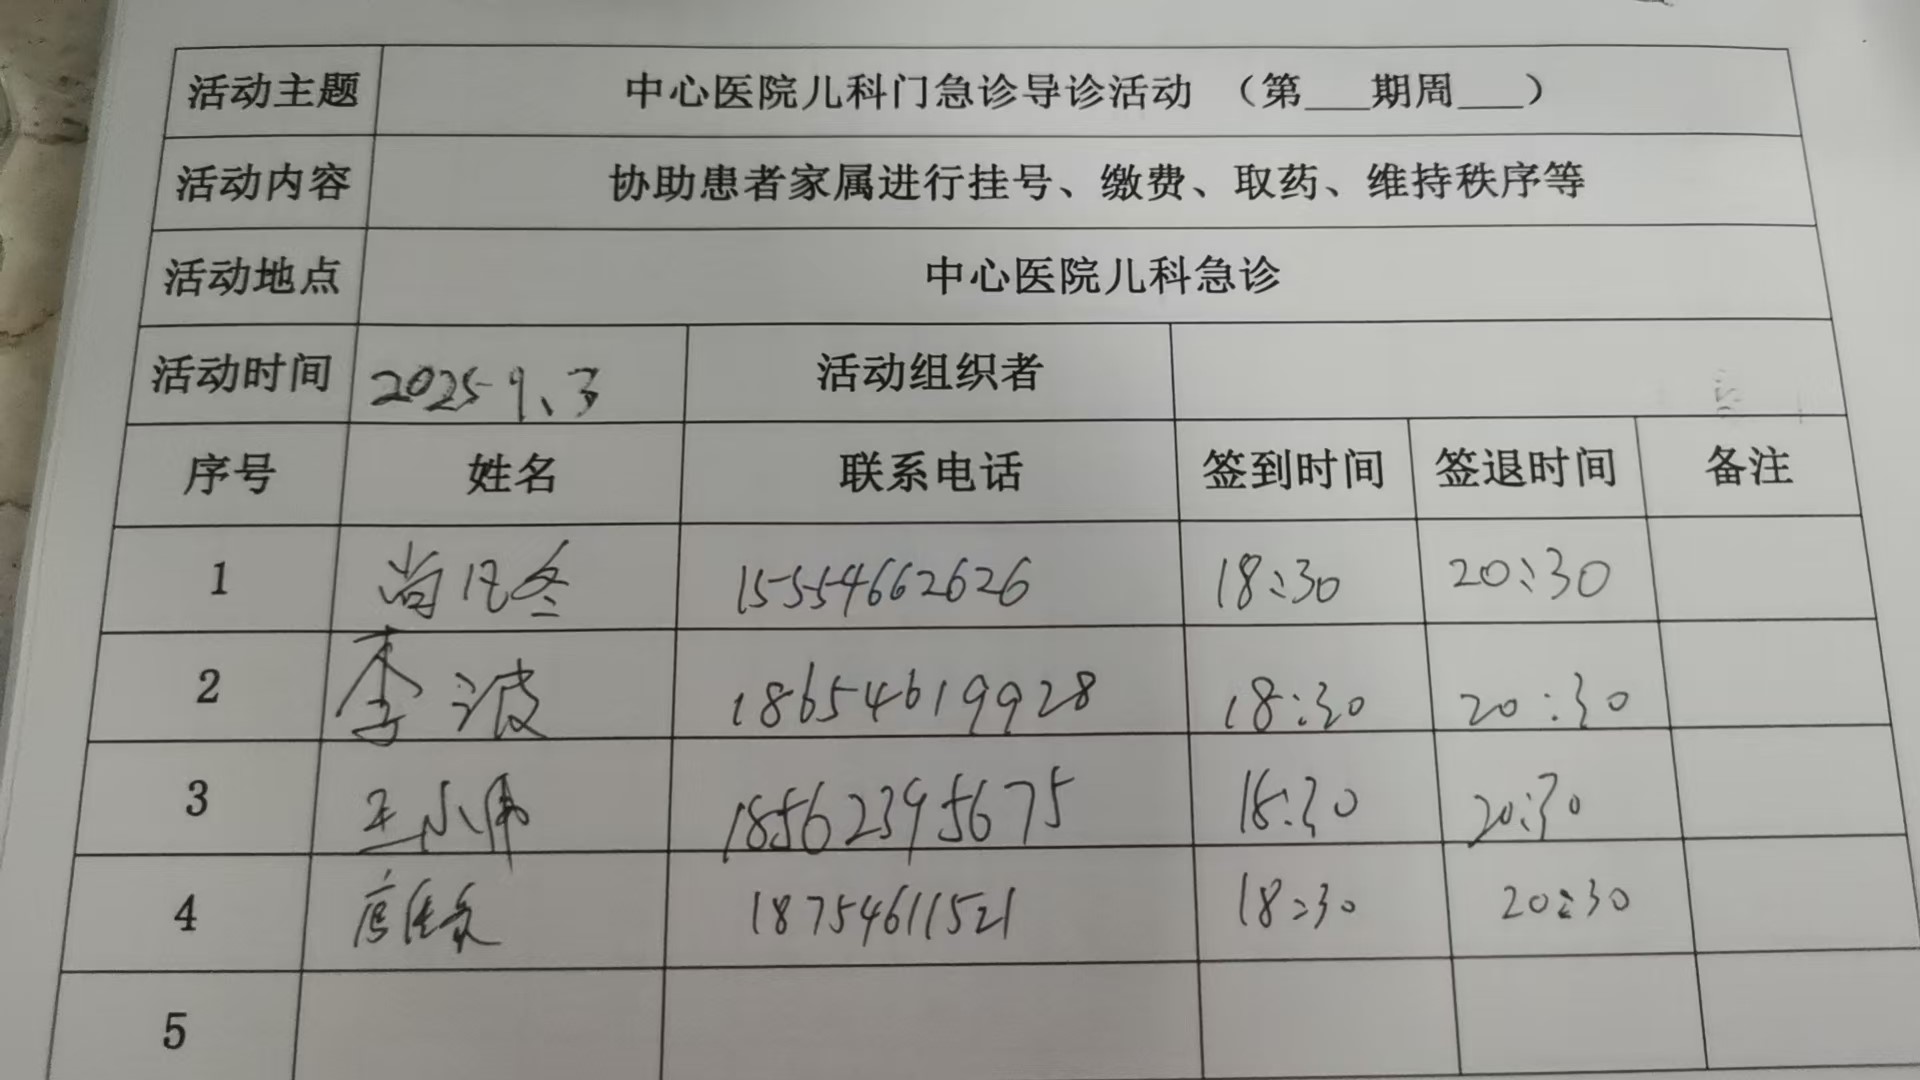 活动主题 中心医院儿科门急诊导诊活动 （第___期周___）
活动内容 协助患者家属进行挂号、缴费、取药、维持秩序等
活动地点 中心医院儿科急诊
活动时间 2025 9、3 活动组织者
序号 姓名 联系电话 签到时间 签退时间 备注
1 尚 冬 15554662626 18:30 20:30
2 李波 18654619928 18:30 20:30
3 王小伟 18562395675 18:30 20:30
4 18754611521 18:30 20:30
5